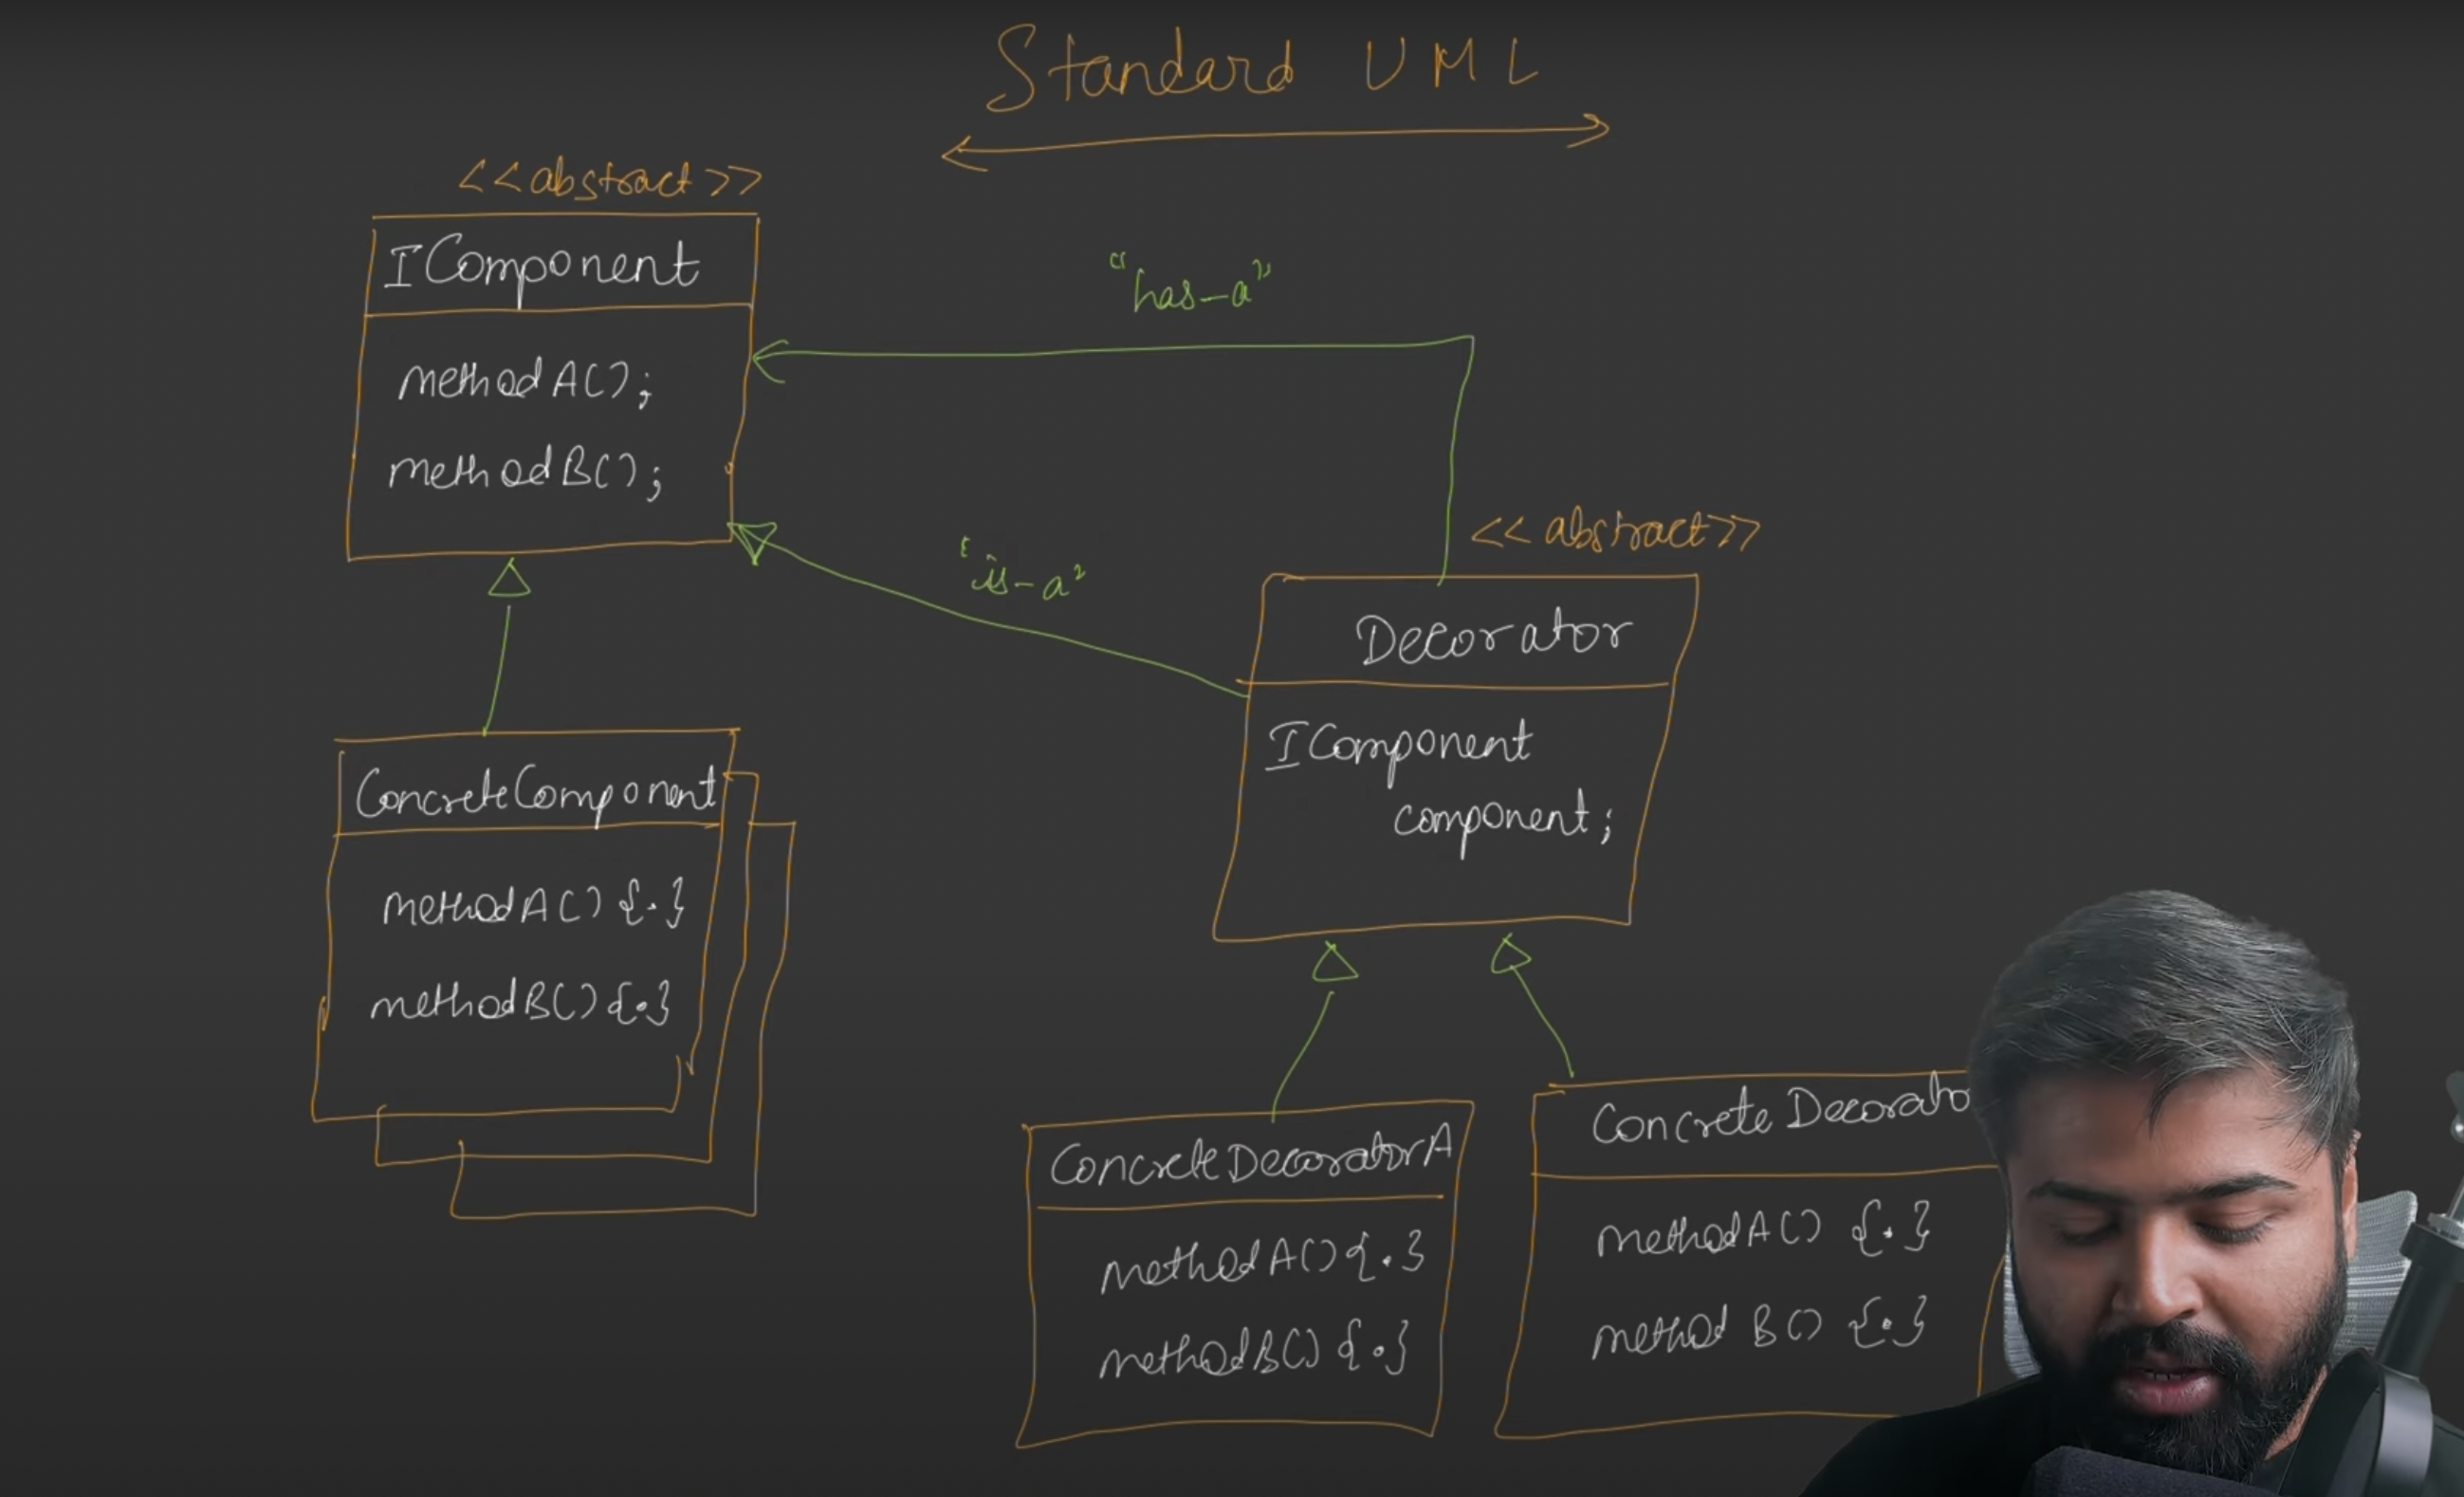 Standard UML
<<abstract>>
IComponent
methodA();
methodB();
"has-a"
"is-a"
<<abstract>>
Decorator
IComponent
component;
ConcreteComponent
methodA() {.}
methodB() {.}
ConcreteDecoratorA
methodA() {.}
methodB() {.}
Concrete Decorato
methodA() {.}
method B() {.}